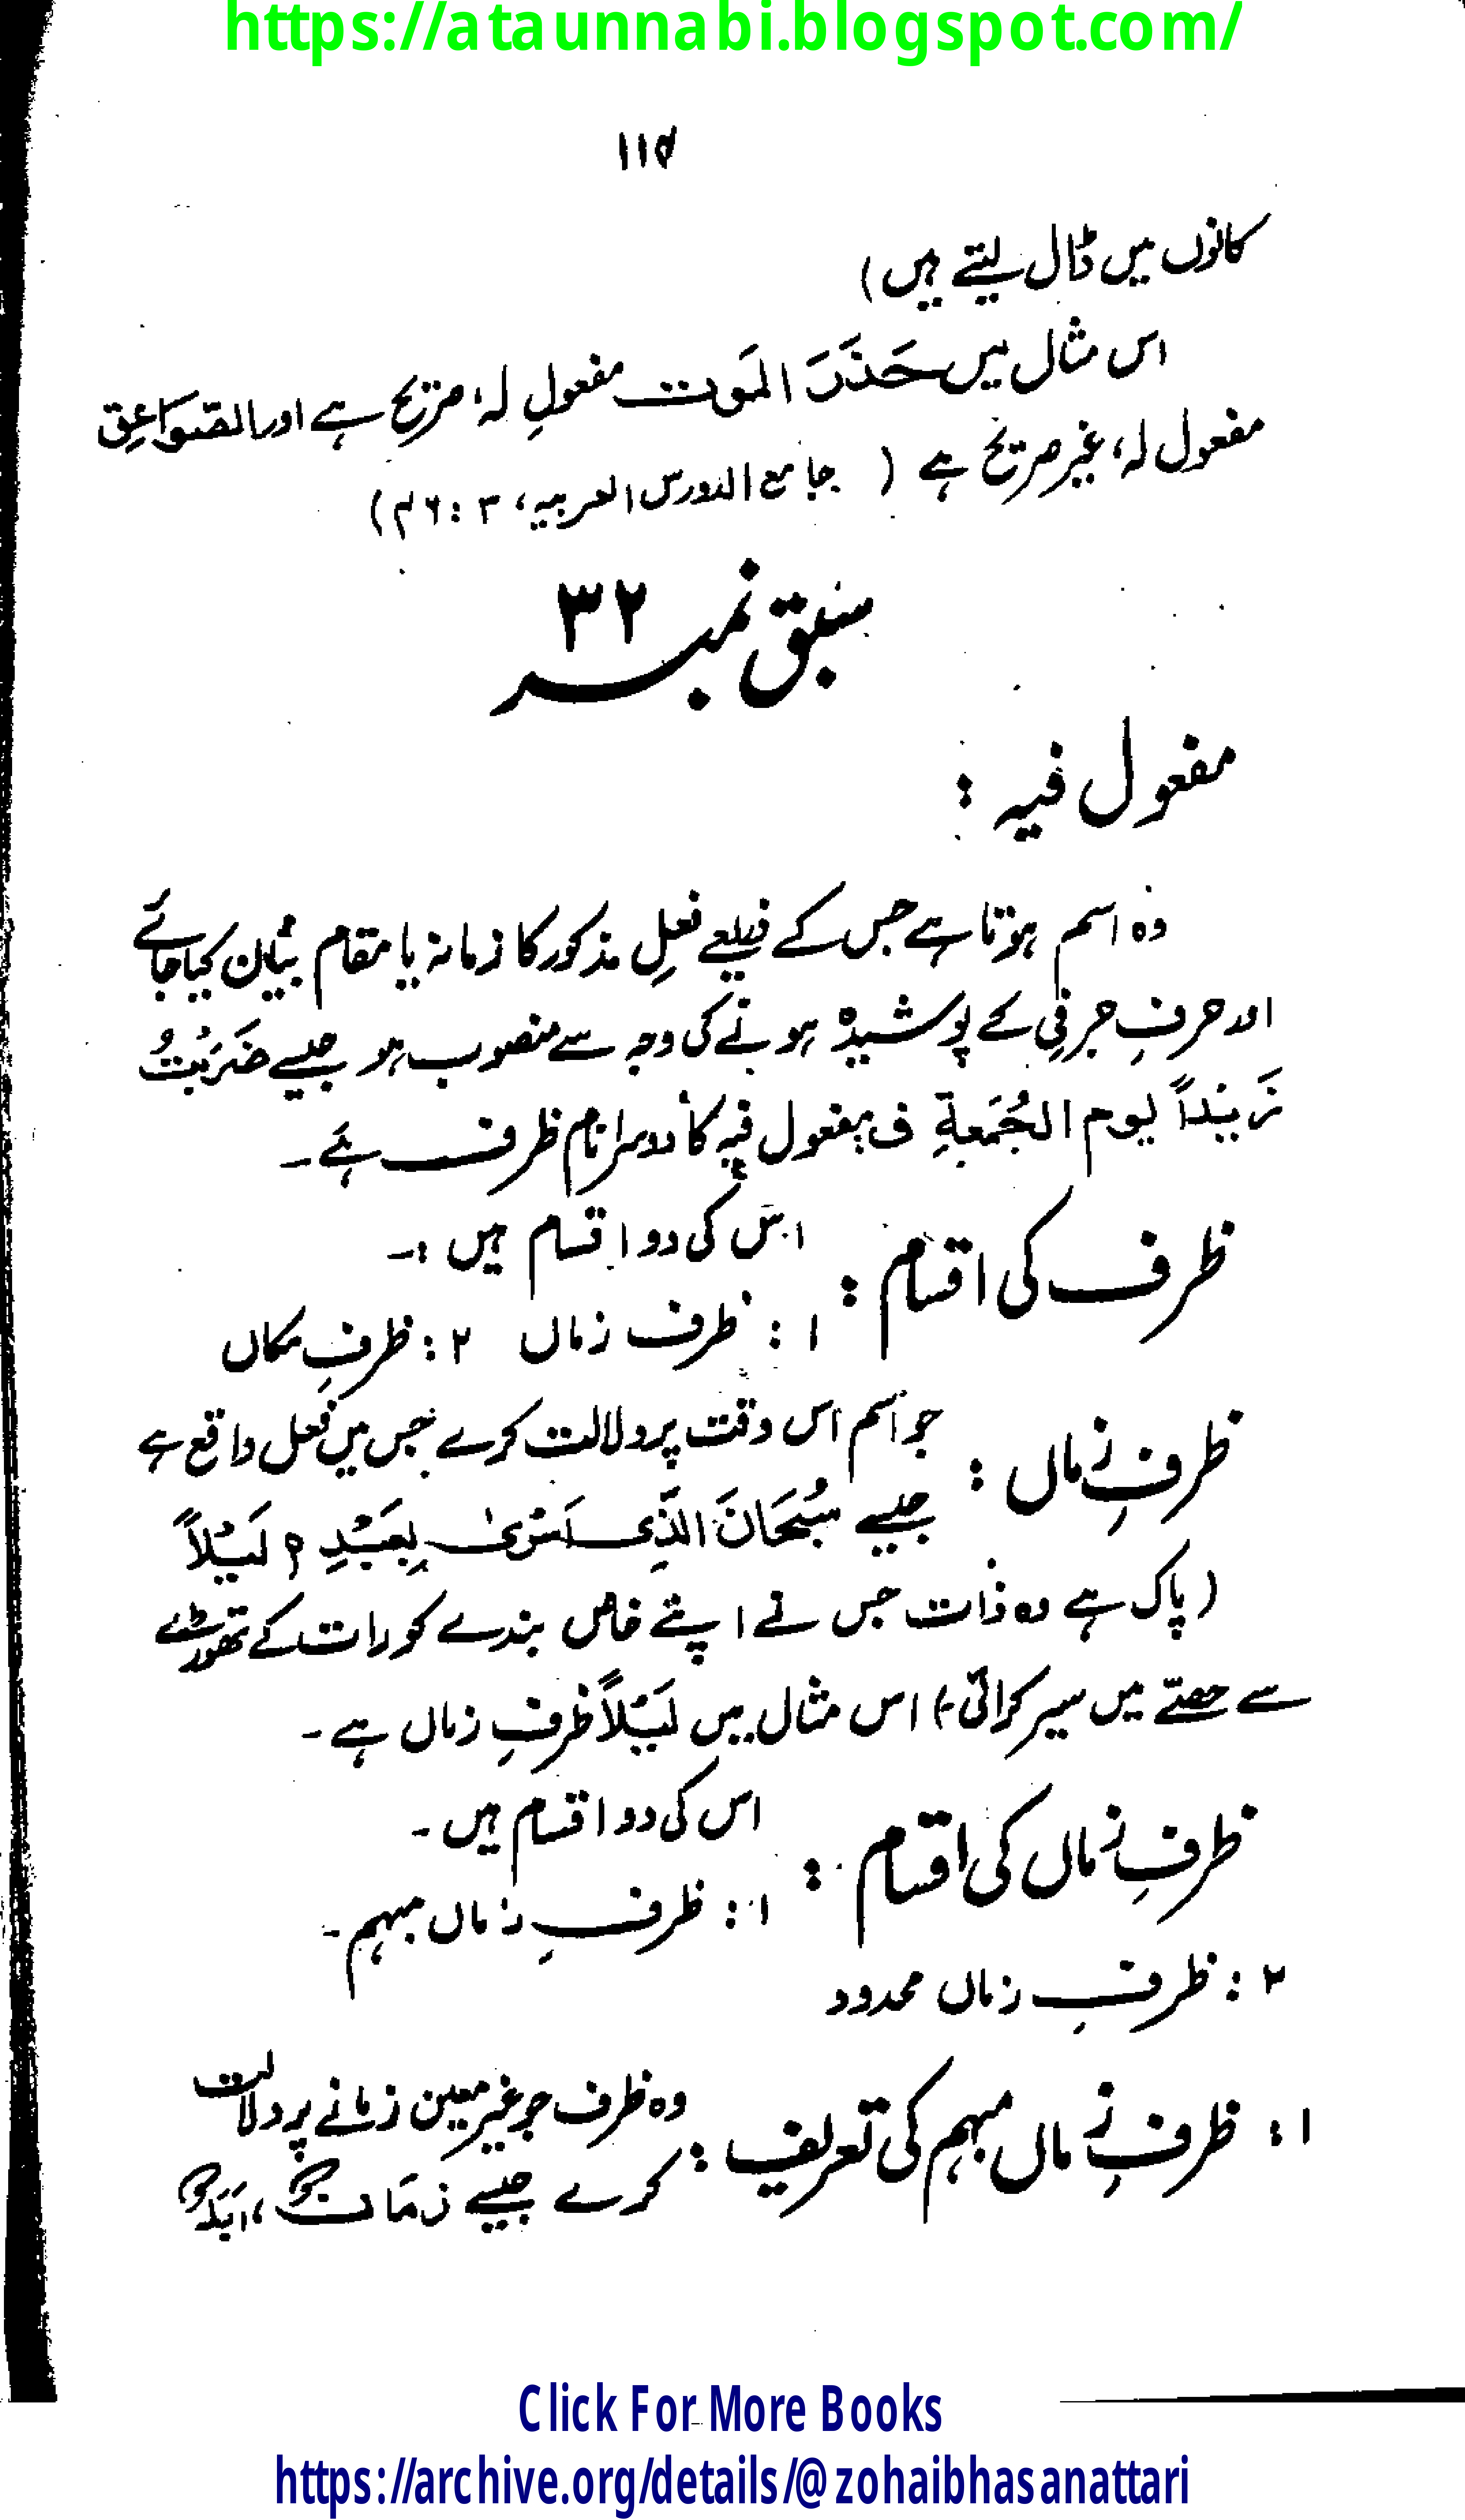 https://ataunnabi.blogspot.com/
۱۱۵
کانوں میں ڈال لیتے ہیں)
اس مثال میں حَذَرَ المَوت مفعولِ لہ، صریح ہے اور الصَّوَاعِق
مفعول لہ، غیر صریح ہے ( جامع الدورس العربیہ، ۳ : ۴۶)
سبق نمبر ۳۲
مفعول فیہ :
وہ اسم ہوتا ہے جس کے ذریعے فعلِ مذکور کا زمانہ یا مقام بیان کیا جائے
اور حرفِ جر فِی کے پوشیدہ ہونے کی وجہ سے منصوب ہو جیسے ضَرَبْتُ
زَیْدًا یوم الجُمَعةِ ف مفعول فیہ کا دوسرا نام ظرف ہے۔
ظرف کی اقسام : اس کی دو اقسام ہیں :۔
۱ : ظرف زماں ۲ : ظرفِ مکاں
ظرفِ زماں : جو اسم اس وقت پر دلالت کرے جس میں فعل واقع ہے
جیسے سُبْحَانَ الَّذِی اَسْرٰی بِعَبْدِہٖ لَیْلاً
(پاک ہے وہ ذات جس نے اپنے خاص بندے کو رات کے تھوڑے
سے حصّے میں سیر کرائی) اس مثال میں لَیْلاً ظرفِ زماں ہے۔
ظرفِ زماں کی اقسام : اس کی دو اقسام ہیں۔
۱ : ظرفِ زماں مبہم۔
۲ : ظرفِ زماں محدود
۱ : ظرفِ زماں مبہم کی تعریف : وہ ظرف جو غیر معین زمانے پر دلالت
کرے جیسے زمَانٌ ، اَبَدٌ
Click For More Books
https://archive.org/details/@zohaibhasanattari